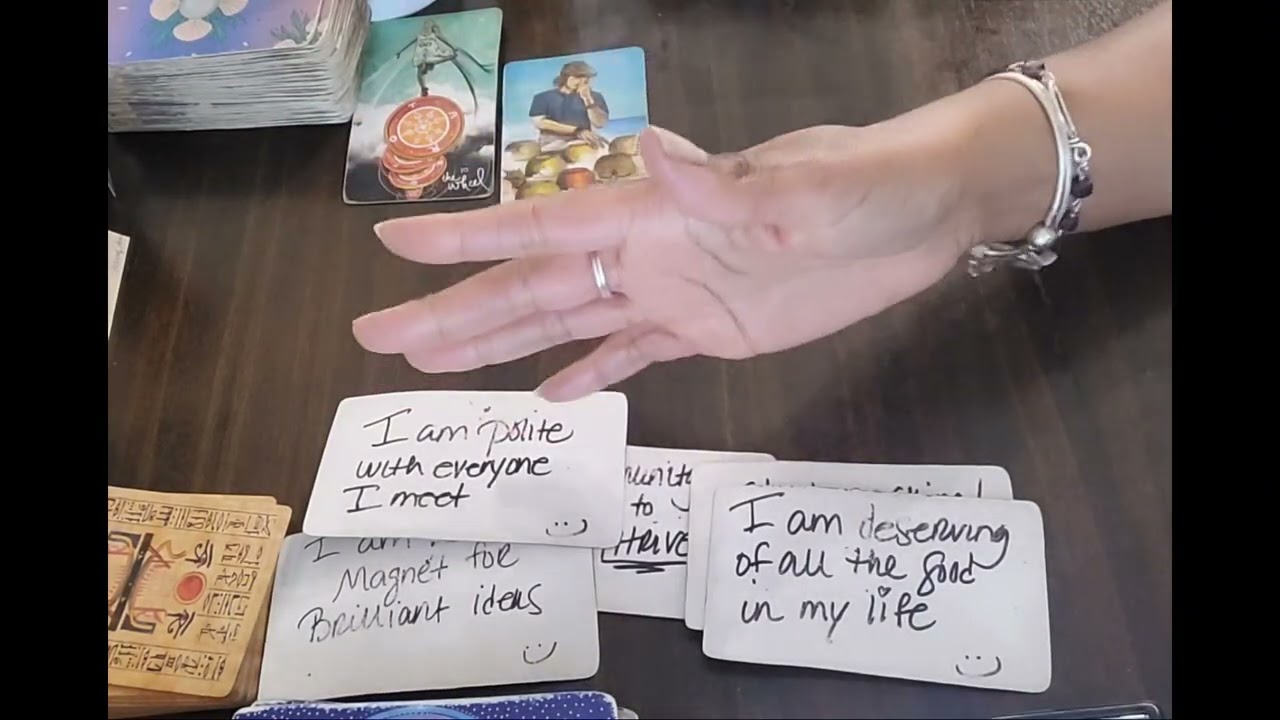 the wheel
I am polite
with everyone
I meet
I am
Magnet for
Brilliant ideas
to
THRIVE
I am deserving
of all the good
in my life